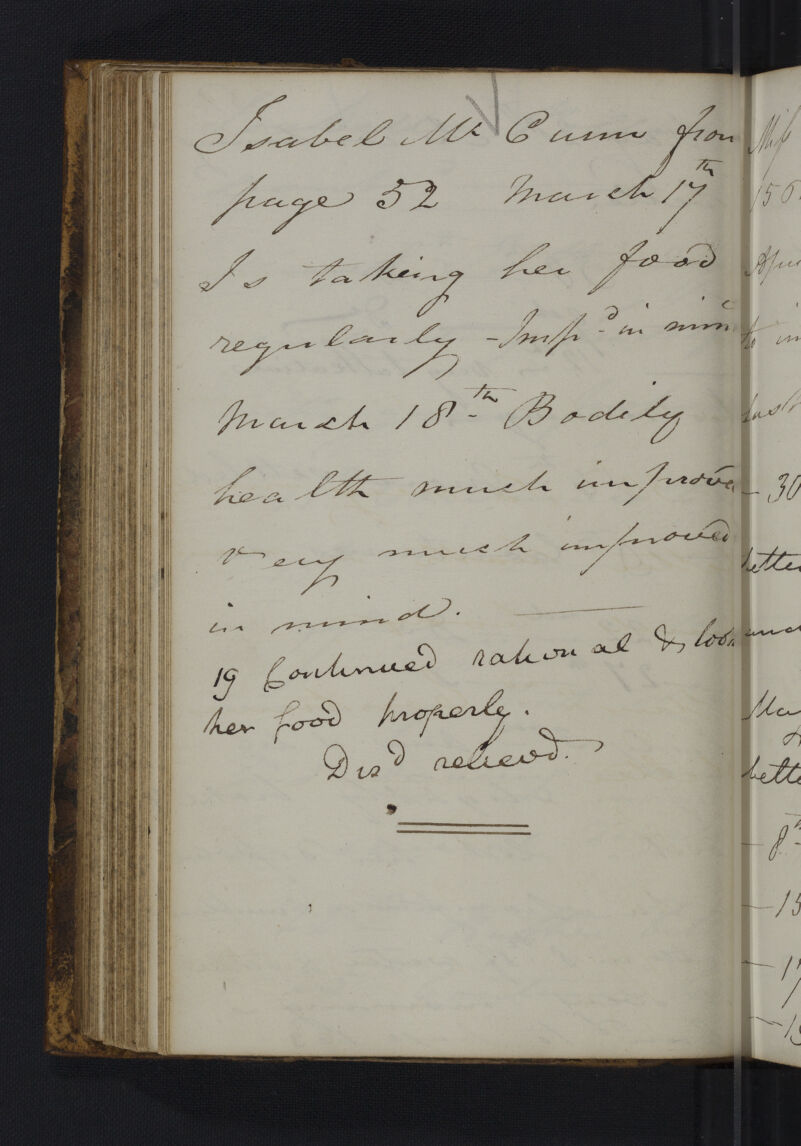 Isabel Mc Cunn from
page 52 March 17th
Is taking her food
regularly - Impd in mind
March 18th Bodily
health much improved
very much improved
in mind.
19 Continued rational & took
her food properly.
Disd relievd.
Miss
156
to im
last
- 30
better
and
Ma
bette
- 8th
- 15
- 17
- 19